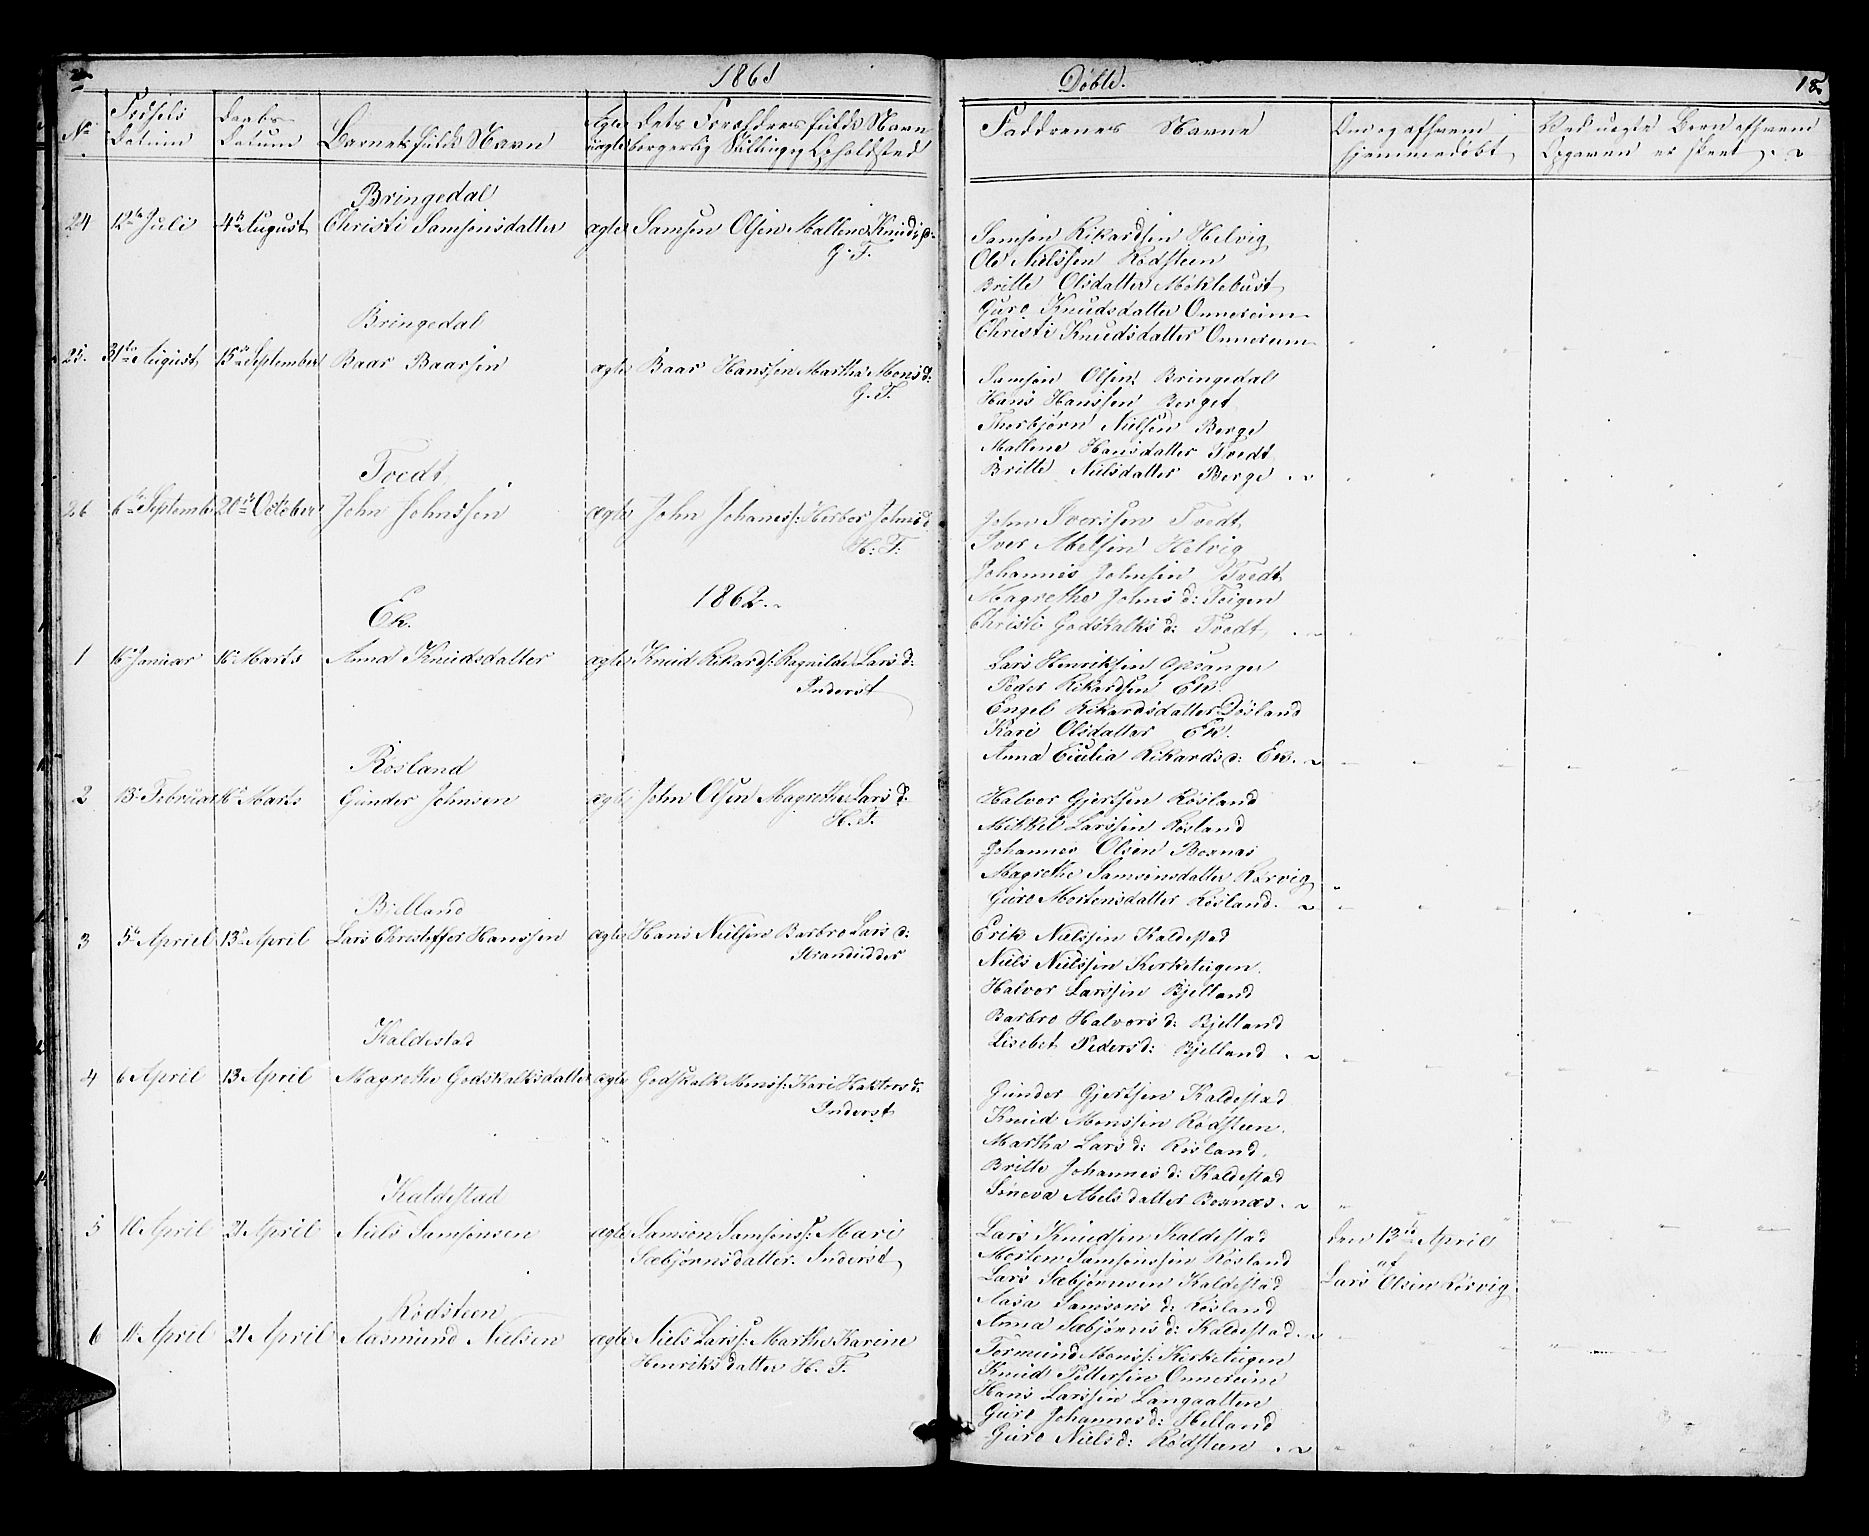 1861
Døbte.
18
No
Fødsels Datum
Daabs Datum
Barnets fulde Navn
ægte uægte
Dets Forældres fulde Navn
borgerlig Stilling og Opholdsted
Faddrenes Navne
Om og af hvem hjemmedøbt
Ved uegte Børn af hvem
Opgaven er skeet
Bringedal
24 12te Juli 4de August Christi Samsonsdatter ægte Samson Olsen Mallene Knuds d:
G. F.
Samson Rikardsen Helvig
Ole Nielssen Rødsteen
Britte Olsdatter Møklebust
Guro Knudsdatter Onnereim
Christi Knudsdatter Onnereim
Bringedal
25. 31te August 15de September Baar Baarsen ægte Baar Hanssen Martha Mons d:
G. F.
Samson Olsen Bringedal
Hans Hanssen Berget
Thorbjørn Nielsen Berge
Mallene Hansdatter Tvedt
Britte Nielsdatter Berge
Tvedt
26 6te September 20de October John Johnssen ægte John Johaness: Herbor Johns d:
H: F:
John Iverssen Tvedt
Iver Abelsen Helvig
Johannes Johnsen Tvedt
Magrethe Johns d: Teigen
Christi Godskalks d: Tvedt
1862
Ek.
1 16 Januar 16 Marts Anna Knudsdatter ægte Knud Rikards: Ragnilde Lars d:
Inderst
Lars Henriksen Opsanger
Peder Rikardsen Ek.
Engel Rikardsdatter Døsland
Kari Olsdatter Ek.
Anna Cecilia Rikards d: Ek.
Røsland
2 13 Februar 16 Marts Gunder Johnsen ægte John Olsen Magrethe Lars d:
H. F.
Halvor Gjertsen Røsland
Mikkel Larssen Røsland
Johannes Olsen Boxnæs
Magrethe Samsonsdatter Rørvig
Guro Mortensdatter Røsland.
Bielland
3 5te Apriel 13de April Lars Christoffer Hanssen ægte Hans Nielsen Barbro Lars d:
Strandsidder
Erik Nielssen Kaldestad
Niels Nielssen Kirketeigen
Halvor Larssen Bjelland
Barbro Halvors d: Bjelland
Lisebet Peders d: Bjelland
Kaldestad
4 6 April 13 April Magrethe Godskalksdatter ægte Godskalk Monss: Kari Haktors d:
Inderst
Gunder Gjertsen Kaldestad
Knud Monssen Rødsteen.
Martha Lars d: Røsland.
Britte Johannes d: Kaldestad
Sineva Abelsdatter Boxnæs.
Kaldestad
5 10 April 21 April Niels Samsonsen ægte Samson Samsonss: Mari
Sæbjørnsdatter. Inderst
Lars Knudsen Kaldestad
Morten Samsonssen Røsland
Lars Sæbjørnsen Kaldestad
Aasa Samsons d: Røsland
Anna Sæbjørns d: Kaldestad
Den 13de April
af
Lars Olsen Rørvig
Rødsteen
6 11 April 21 April Aasmund Nielsen ægte Niels Larss: Marthe Karine
Henriksdatter H. F.
Tormund Monss: Kirketeigen
Knud Pettersen Onnereim
Hans Larssen Langaalten
Guro Johannes d: Helland
Guro Niels d: Rødsteen